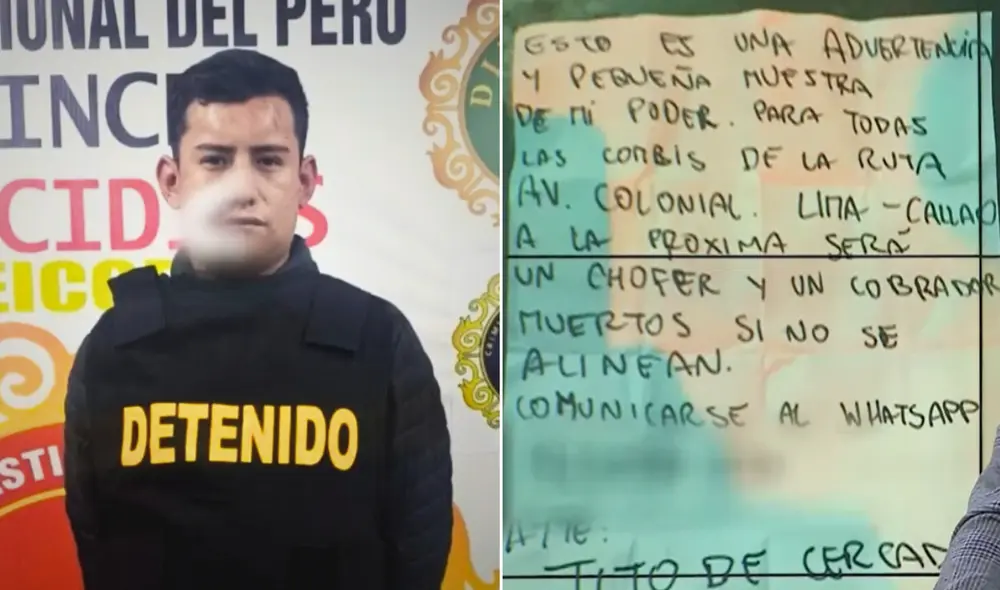 IONAL DEL PERÚ
INC
CID S
EICO
DETENIDO
ESTO ES UNA ADVERTENCIA
Y PEQUEÑA MUESTRA
DE MI PODER. PARA TODAS
LAS COMBIS DE LA RUTA
AV. COLONIAL. LIMA - CALLAO
A LA PROXIMA SERÁ
UN CHOFER Y UN COBRADOR
MUERTOS SI NO SE
ALINEAN.
COMUNICARSE AL WHATSAPP
ATTE:
TITO DE CERCAD